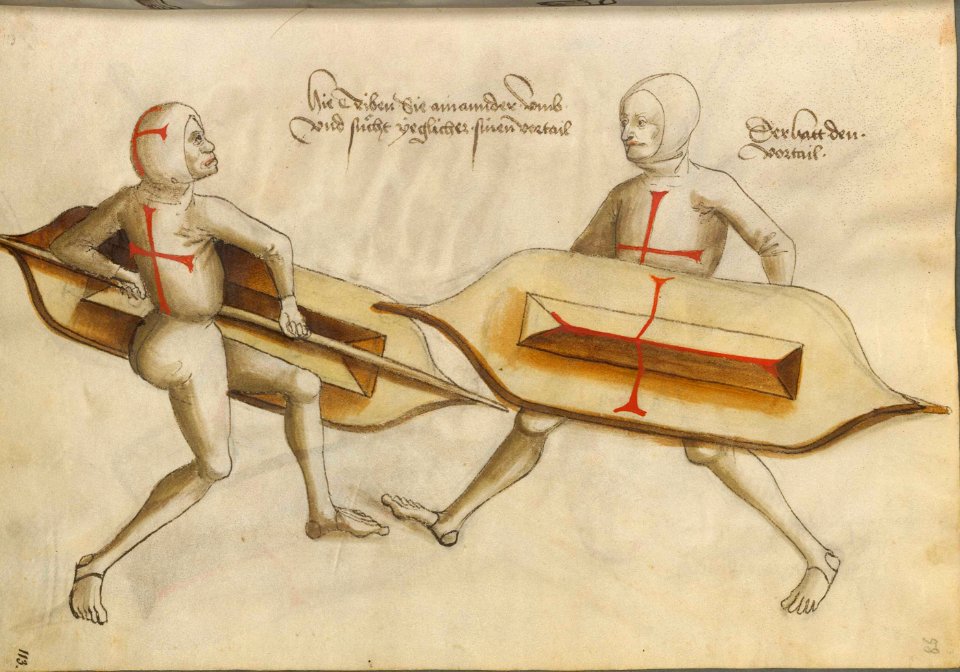 Hie Triben Sie ainannder vmb
vnd sůcht yeglicher sinen vortail
Der hatt den
vortail
113.